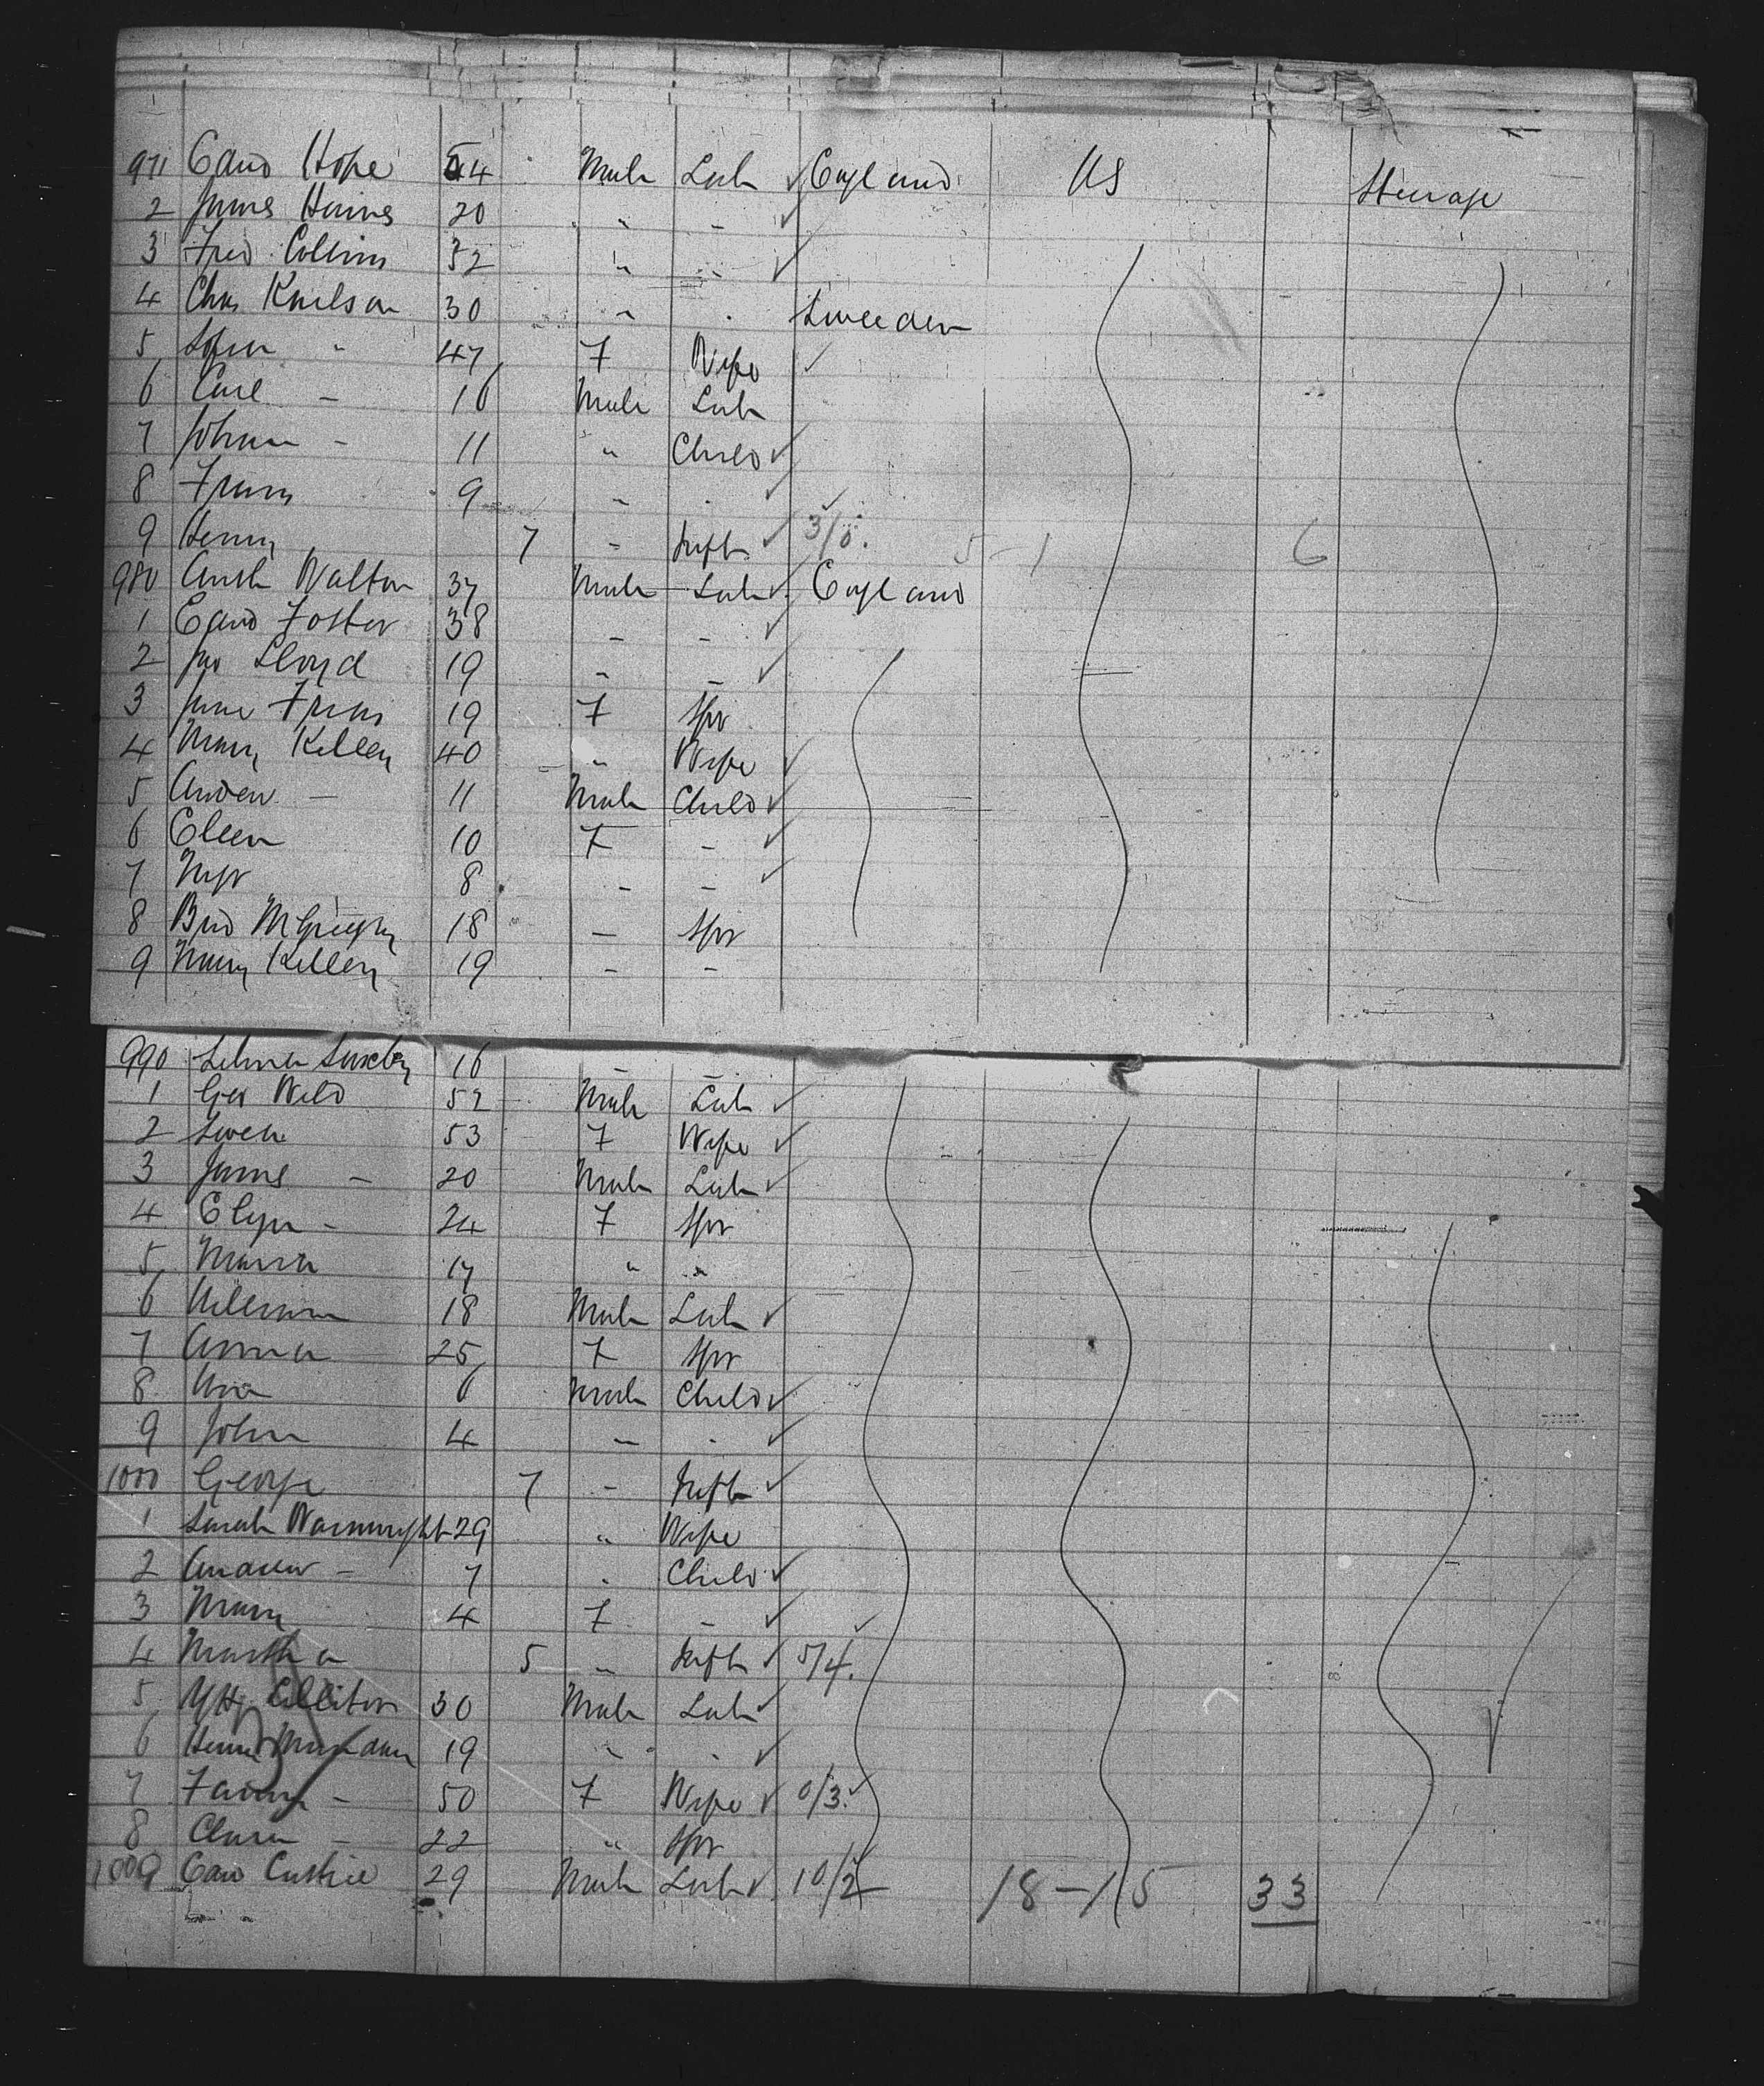 971 Edwd Hope 44 Male Lab England US Steerage
2 James Haines 20 " -
3 Fred Collins 32 " "
4 Chas Karlson 30 " . Sweeden
5 - 47 F Wife
6 Carl - 16 Male Lab
7 Johan - 11 " Child
8 Frans 9 - .
9 Henry 7 - Inft 3/0. 5-1 6
980 Walton 37 Male Lab England
1 Edwd Foster 38 - -
2 Jno Lloyd 19 - -
3 Jane 19 F Spr
4 Mary Kelley 40 " Wife
5 Andew - 11 Male Child
6 Ellen 10 F -
7 8 - -
8 18 - Spr
9 Mary Kelley 19 - -
990 16 - -
1 Geo Wild 52 Male Lab
2 53 F Wife
3 James - 20 Male Lab
4 - 24 F Spr
5 17 " "
6 William 18 Male Lab
7 Anna 25 F Spr
8 6 Male Child
9 John 4 - .
1000 George 7 - Inft
1 Sarah Wainwright 29 " Wife
2 Andrew - 7 . Child
3 Mary 4 F -
4 Martha 5 " Inft 5/4.
5 30 Male Lab
6 19 " .
7 Fanny - 50 F Wife 0/3.
8 Clara - 22 " Spr
1009 Edwd 29 Male Lab 10/2 18-15 33